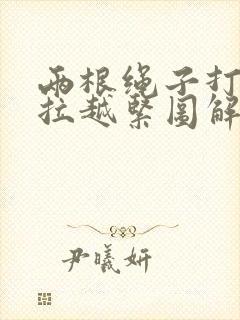 两根绳子打
拉越緊圖解
尹曦妍